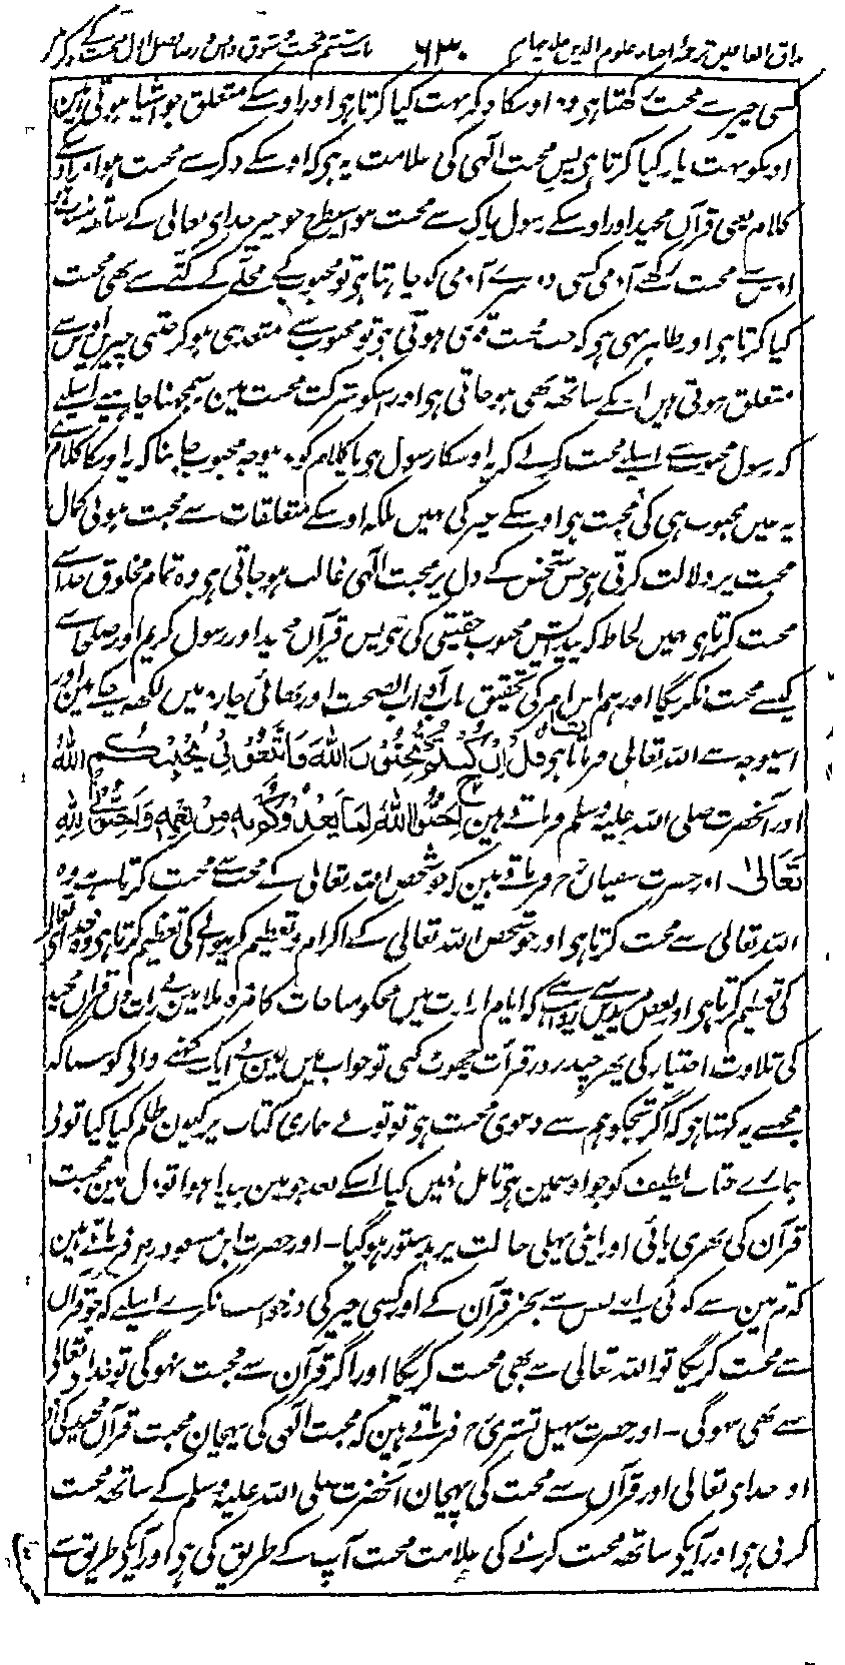 مذاق العارفین ترجمۂ احیاء علوم الدین جلد چہارم ۶۳۰ باب ششم محبت و شوق و انس و رضا فصل اول محبت کے ذکر میں
کسی چیز سے محبت رکھتا ہی وہ اوسکا ذکر بہت کیا کرتا ہی اور اوسکے متعلق جو اشیا ہوتی ہین
اونکو بہت یاد کیا کرتا ہی پس محبت الٰہی کی علامت یہ ہی کہ اوسکے ذکر سے محبت ہو اور اوسکے
کلام یعنی قرآن مجید اور اوسکے رسول پاک سے محبت ہو اسیطرح جو چیز خدای تعالی کے ساتھ منسوب ہی
اوس سے محبت رکھے آدمی کسی دوسرے آدمی کو چاہتا ہی تو محبوب کے محلّے کے کتّے سے بھی محبت
کیا کرتا ہی اور ظاہر بھی ہی کہ جب محبت قوی ہوتی ہی تو محبوب سے متعدی ہو کر جتنی چیزین اوس سے
متعلق ہوتی ہیں اونکے ساتھ بھی ہو جاتی ہی اور اسکو شرکت محبت مین سمجھنا نچاہیے اسلیے
کہ رسول محبوب سے اسلیے محبت کرنے کہ یہ اوسکا رسول ہی یا کلام کو بوجہ محبوب جاننا کہ یہ اوسکا کلام ہے
یہ عین محبوب ہی کی محبت ہی اوسکے غیر کی نہیں بلکہ اوسکے متعلقات سے محبت ہونی کمال
محبت پر دلالت کرتی ہی جس شخص کے دل پر محبت الٰہی غالب ہو جاتی ہی وہ تمام مخلوق خدا سے
محبت کرتا ہی بدین لحاظ کہ پیدایش محبوب حقیقی کی ہی پس قرآن مجید اور رسول کریم اور صلحا سے
کیسے محبت نکریگا اور ہم اس امر کی تحقیق باب آداب الصحبت اور بھائی چارہ میں لکھہ چکے ہین اور
اسیوجہ سے اللہ تعالی فرماتا ہی قُلْ اِنْ كُنْتُمْ تُحِبُّوْنَ اللّٰهَ فَاتَّبِعُوْنِیْ يُحْبِبْكُمُ اللّٰهُ
اور آنحضرت صلی اللہ علیہ وسلم فرماتے ہین اَحِبُّوا اللّٰهَ لِمَا يَغْذُوْكُمْ بِهٖ مِنْ نِعَمِهٖ وَاَحِبُّوْنِیْ لِلّٰهِ
تَعَالٰی اور حضرت سفیان رح فرماتے ہین کہ جو شخص اللہ تعالی کے محب سے محبت کرتا ہے وہ
اللہ تعالی سے محبت کرتا ہی اور جو شخص اللہ تعالی کے اکرام و تعظیم کرنیوالے کی تعظیم کرتا ہی وہ خدای تعالی
کی تعظیم کرتا ہی اور بعض مریدین سے روایت ہے کہ ایام ارادت میں مجکو مناجات کا مزہ ملا مینے رات دن قرآن مجید
کی تلاوت اختیار کی پھر چند روز قرأت چھوٹ گئی تو خواب میں مین نے ایک کہنے والی کو سنا کہ
مجھسے یہ کہتا ہی کہ اگر تجکو ہم سے دعوی محبت ہی تو تونے ہماری کتاب پر کیون ظلم کیا کیا تونے
ہمارے عتاب لطیف کو جو اوسمین ہی تامل نہیں کیا اسکے بعد جو مین بیدار ہوا تو دل مین محبت
قرآن کی بھری پائی اور اپنی پہلی حالت پر بدستور ہوگیا ۔ اور حضرت ابن مسعود رض فرماتے ہین
کہ تم مین سے کوئی اپنے نفس سے بجز قرآن کے اور کسی چیز کی درخواست نکرے اسلیے کہ جو قرآن
سے محبت کریگا تو اللہ تعالی سے بھی محبت کریگا اور اگر قرآن سے محبت نہوگی تو خداے تعالی
سے بھی نہوگی ۔ اور حضرت سہیل تستری رح فرماتے ہین کہ محبت الٰہی کی پہچان محبت قرآن مجید کی ہی
اور خدای تعالی اور قرآن سے محبت کی پہچان آنحضرت صلی اللہ علیہ وسلم کے ساتھہ محبت
کرنی ہی اور آپکے ساتھہ محبت کرنے کی علامت محبت آپ کے طریق کی ہی اور آپکے طریق سے